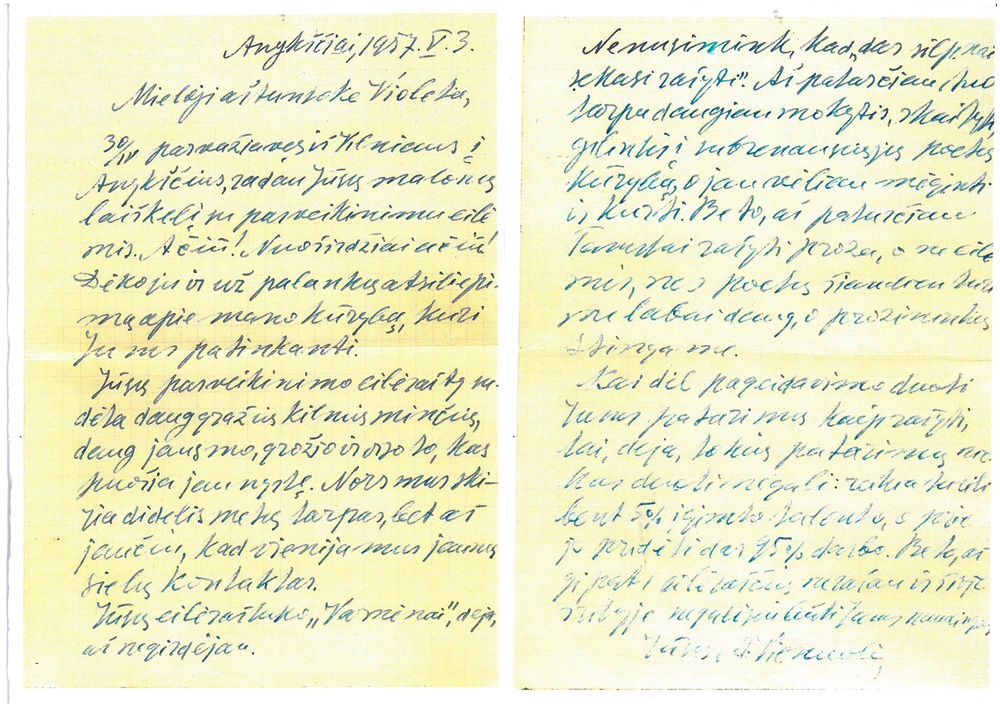 Anykščiai, 1957.V.3.
Mieloji aštuntoke Violeta,
30/IV parvažiavęs iš Vilniaus į
Anykščius, radau Jūsų malonų
laiškelį su pasveikinimu eilė-
mis. Ačiū! Nuoširdžiai ačiū!
Dėkoju ir už palankų atsiliepi-
mą apie mano kūrybą, kuri
Jums patinkanti.
Jūsų pasveikinimo eilėraštyje su-
dėta daug gražių kilnių minčių,
daug jausmo, grožio ir viso to, kas
puošia jaunystę. Nors mus ski-
ria didelis metų tarpas, bet aš
jaučiu, kad vienija mus jaunų
sielų kontaktas.
Jūsų eilėraštuko „Varnėnai", deja,
aš negirdėjau.
Nenusimink, kad „dar silpnai
sekasi rašyti". Aš patarčiau tuo
tarpu daugiau mokytis, skaityti,
gilintis į subrendusiųjų poetų
kūrybą, o jau vėliau mėginti
ir kurti. Be to, aš patarčiau
Tamstai rašyti prozą, o ne eilė-
mis, nes poetų šiandien turi-
me labai daug, o prozininkų
stinga me.
Kai dėl pageidavimo duoti
Jums patarimų kaip rašyti,
tai, deja, tokių patarimų nie-
kas duoti negali: reikia turėti
bent 5% įgimto talento, o prie
jo pridėti dar 95% darbo. Be to, aš
gi pats eilėraščių nerašau ir šioje
srityje negalėsiu būti Jums naudingas.
Jūsų A. Vienuolis